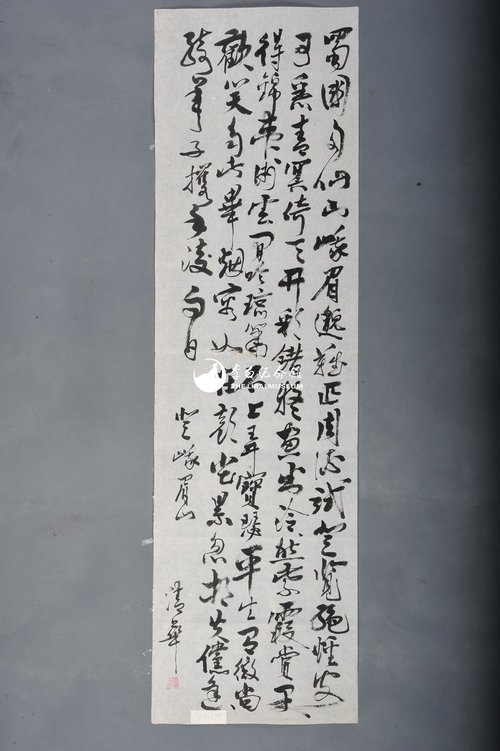 蜀國多仙山峨眉邈難匹周流試登覽絕怪安
可悉青冥倚天開彩錯疑畫出泠然紫霞賞果
得錦囊術雲間吟瓊簫石上弄寶瑟平生有微尚
歡笑自此畢煙容如在顏塵累忽相失儻逢
騎羊子攜手凌白日
登峨眉山
清華
李白纪念馆
THE LIBAI MUSEUM